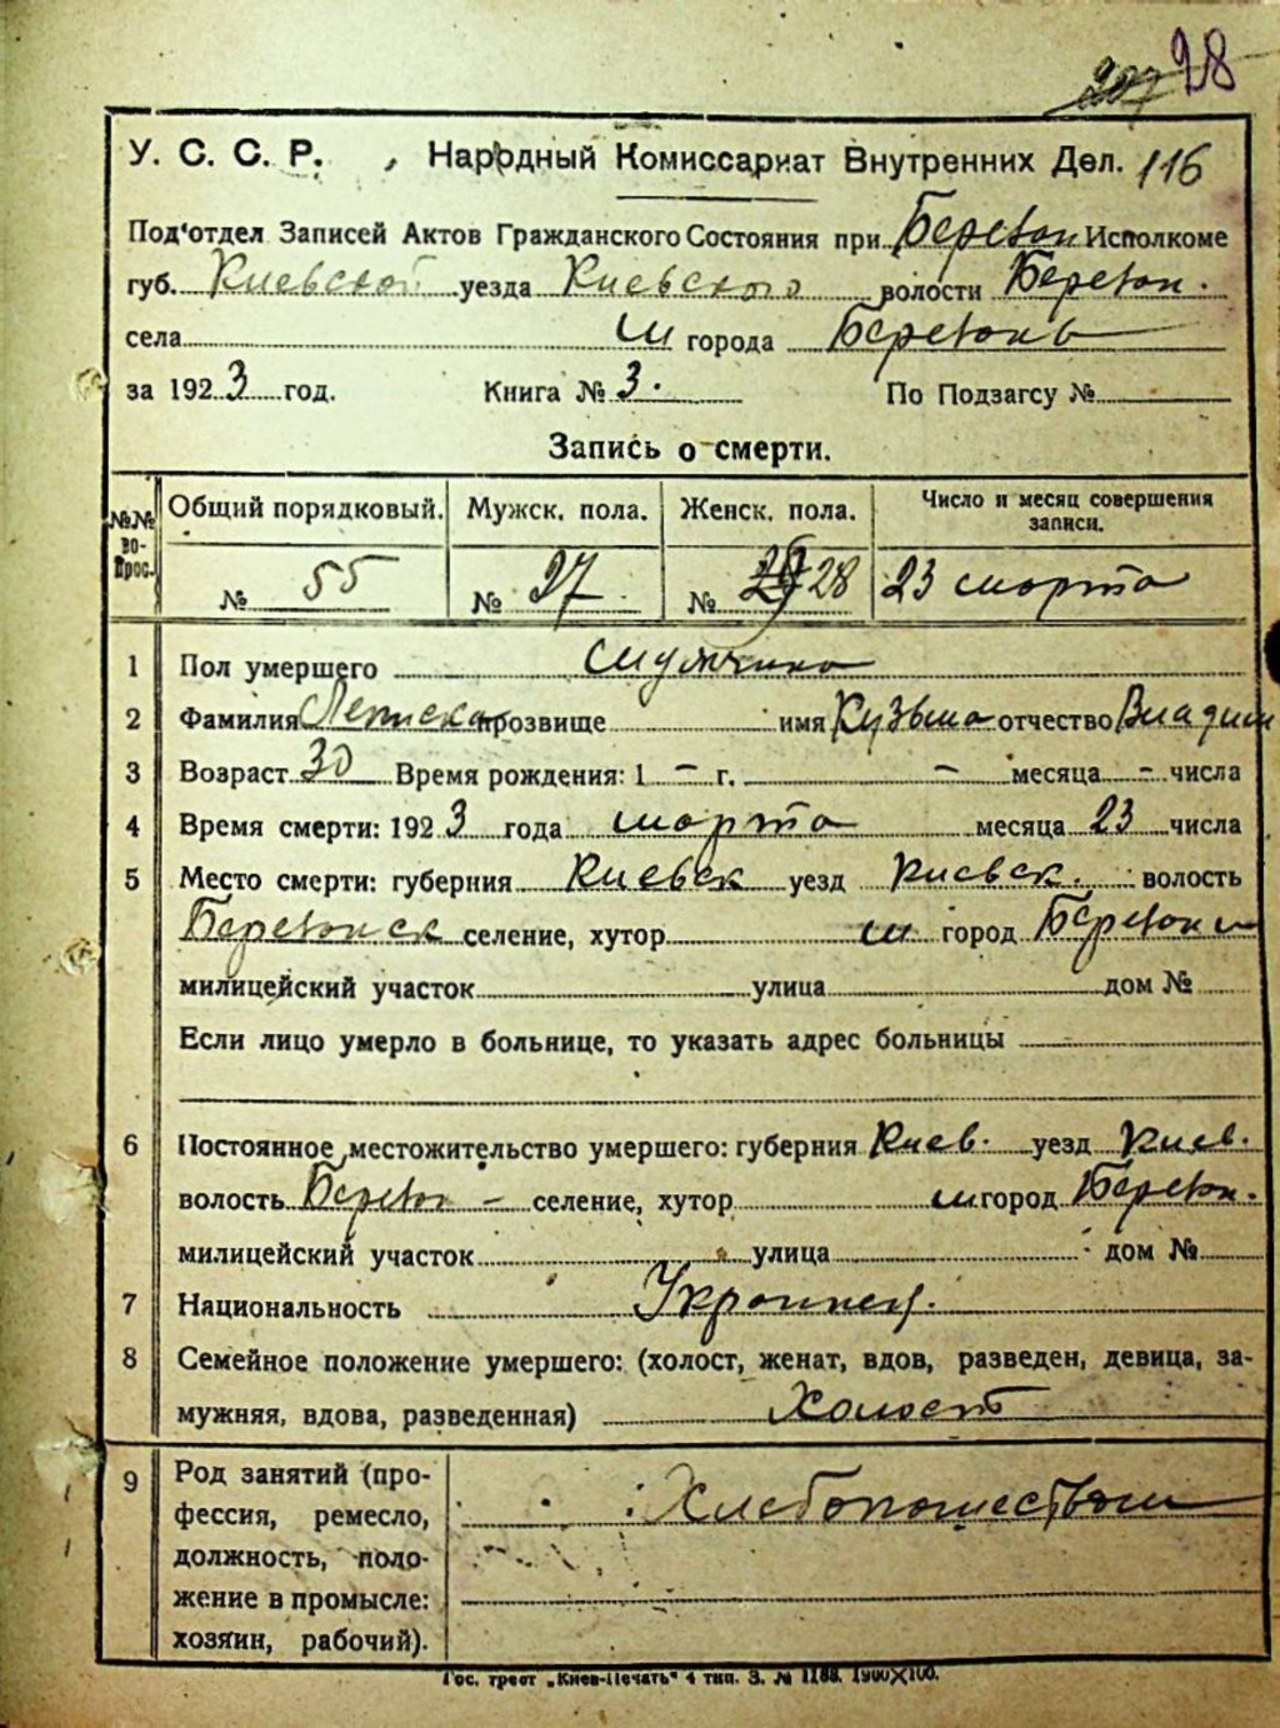 98
У. С. С. Р. Народный Комиссариат Внутренних Дел. 116
Под'отдел Записей Актов Гражданского Состояния при Березан Исполкоме
губ. Киевской уезда Киевского волости Березан.
села м города Березань
за 1923 год. Книга № 3. По Подзагсу №
Запись о смерти.
№№ вопрос. Общий порядковый. Мужск. пола. Женск. пола. Число и месяц совершения записи.
№ 55 № 27 № 28 23 марта
1 Пол умершего Мужчина
2 Фамилия прозвище имя Кузьма отчество Владим
3 Возраст 30 Время рождения: 1 – г. – месяца – числа
4 Время смерти: 1923 года марта месяца 23 числа
5 Место смерти: губерния Киевск уезд Киевск. волость
Березанск селение, хутор м город Березань
милицейский участок улица дом №
Если лицо умерло в больнице, то указать адрес больницы
6 Постоянное местожительство умершего: губерния Киев. уезд Киев.
волость Березан – селение, хутор м город Березан.
милицейский участок улица дом №
7 Национальность Украинец.
8 Семейное положение умершего: (холост, женат, вдов, разведен, девица, за-
мужняя, вдова, разведенная) Холост
9 Род занятий (про-
фессия, ремесло, Хлебопашеством
должность, поло-
жение в промысле:
хозяин, рабочий).
Гос. трест „Киев-Печать" 4 тип. З. № 1188. 1900×100.